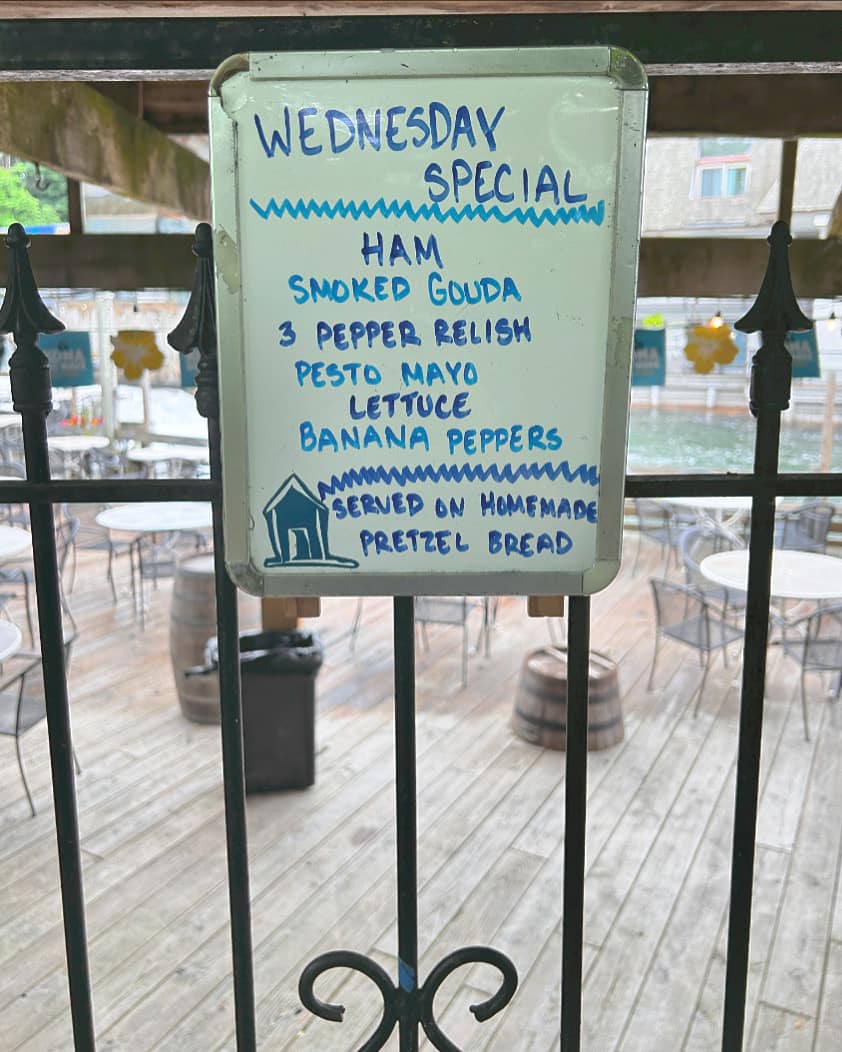 WEDNESDAY
SPECIAL
HAM
SMOKED GOUDA
3 PEPPER RELISH
PESTO MAYO
LETTUCE
BANANA PEPPERS
SERVED ON HOMEMADE
PRETZEL BREAD